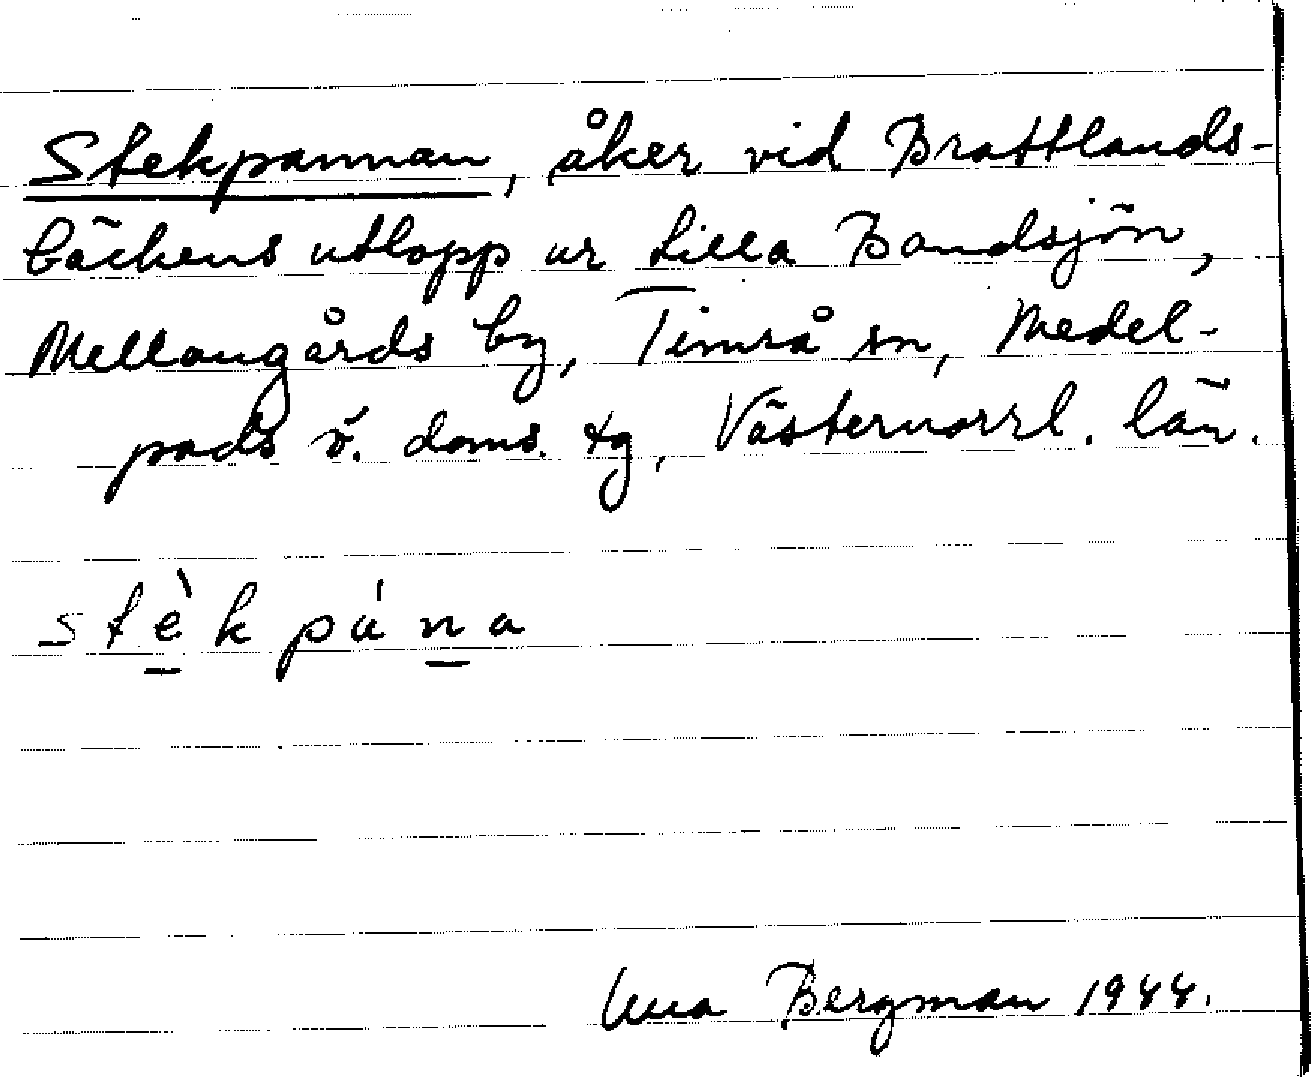 Stekpannan, åker vid Brattlands-
bäckens utlopp ur Lilla Bandsjön,
Mellangårds by, Timrå sn, Medel-
pads v. doms. tg, Västernorrl. län.
stèkpána
Una Bergman 1944.